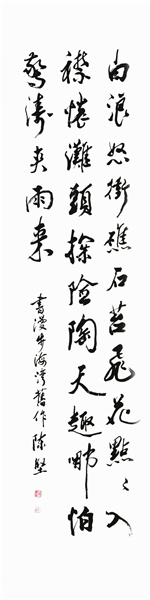 白浪怒衝礁石苔飛花點點入
襟懷灘頭探險陶天趣哪怕
驚濤夾雨來
書漫步海灣舊作陳堅